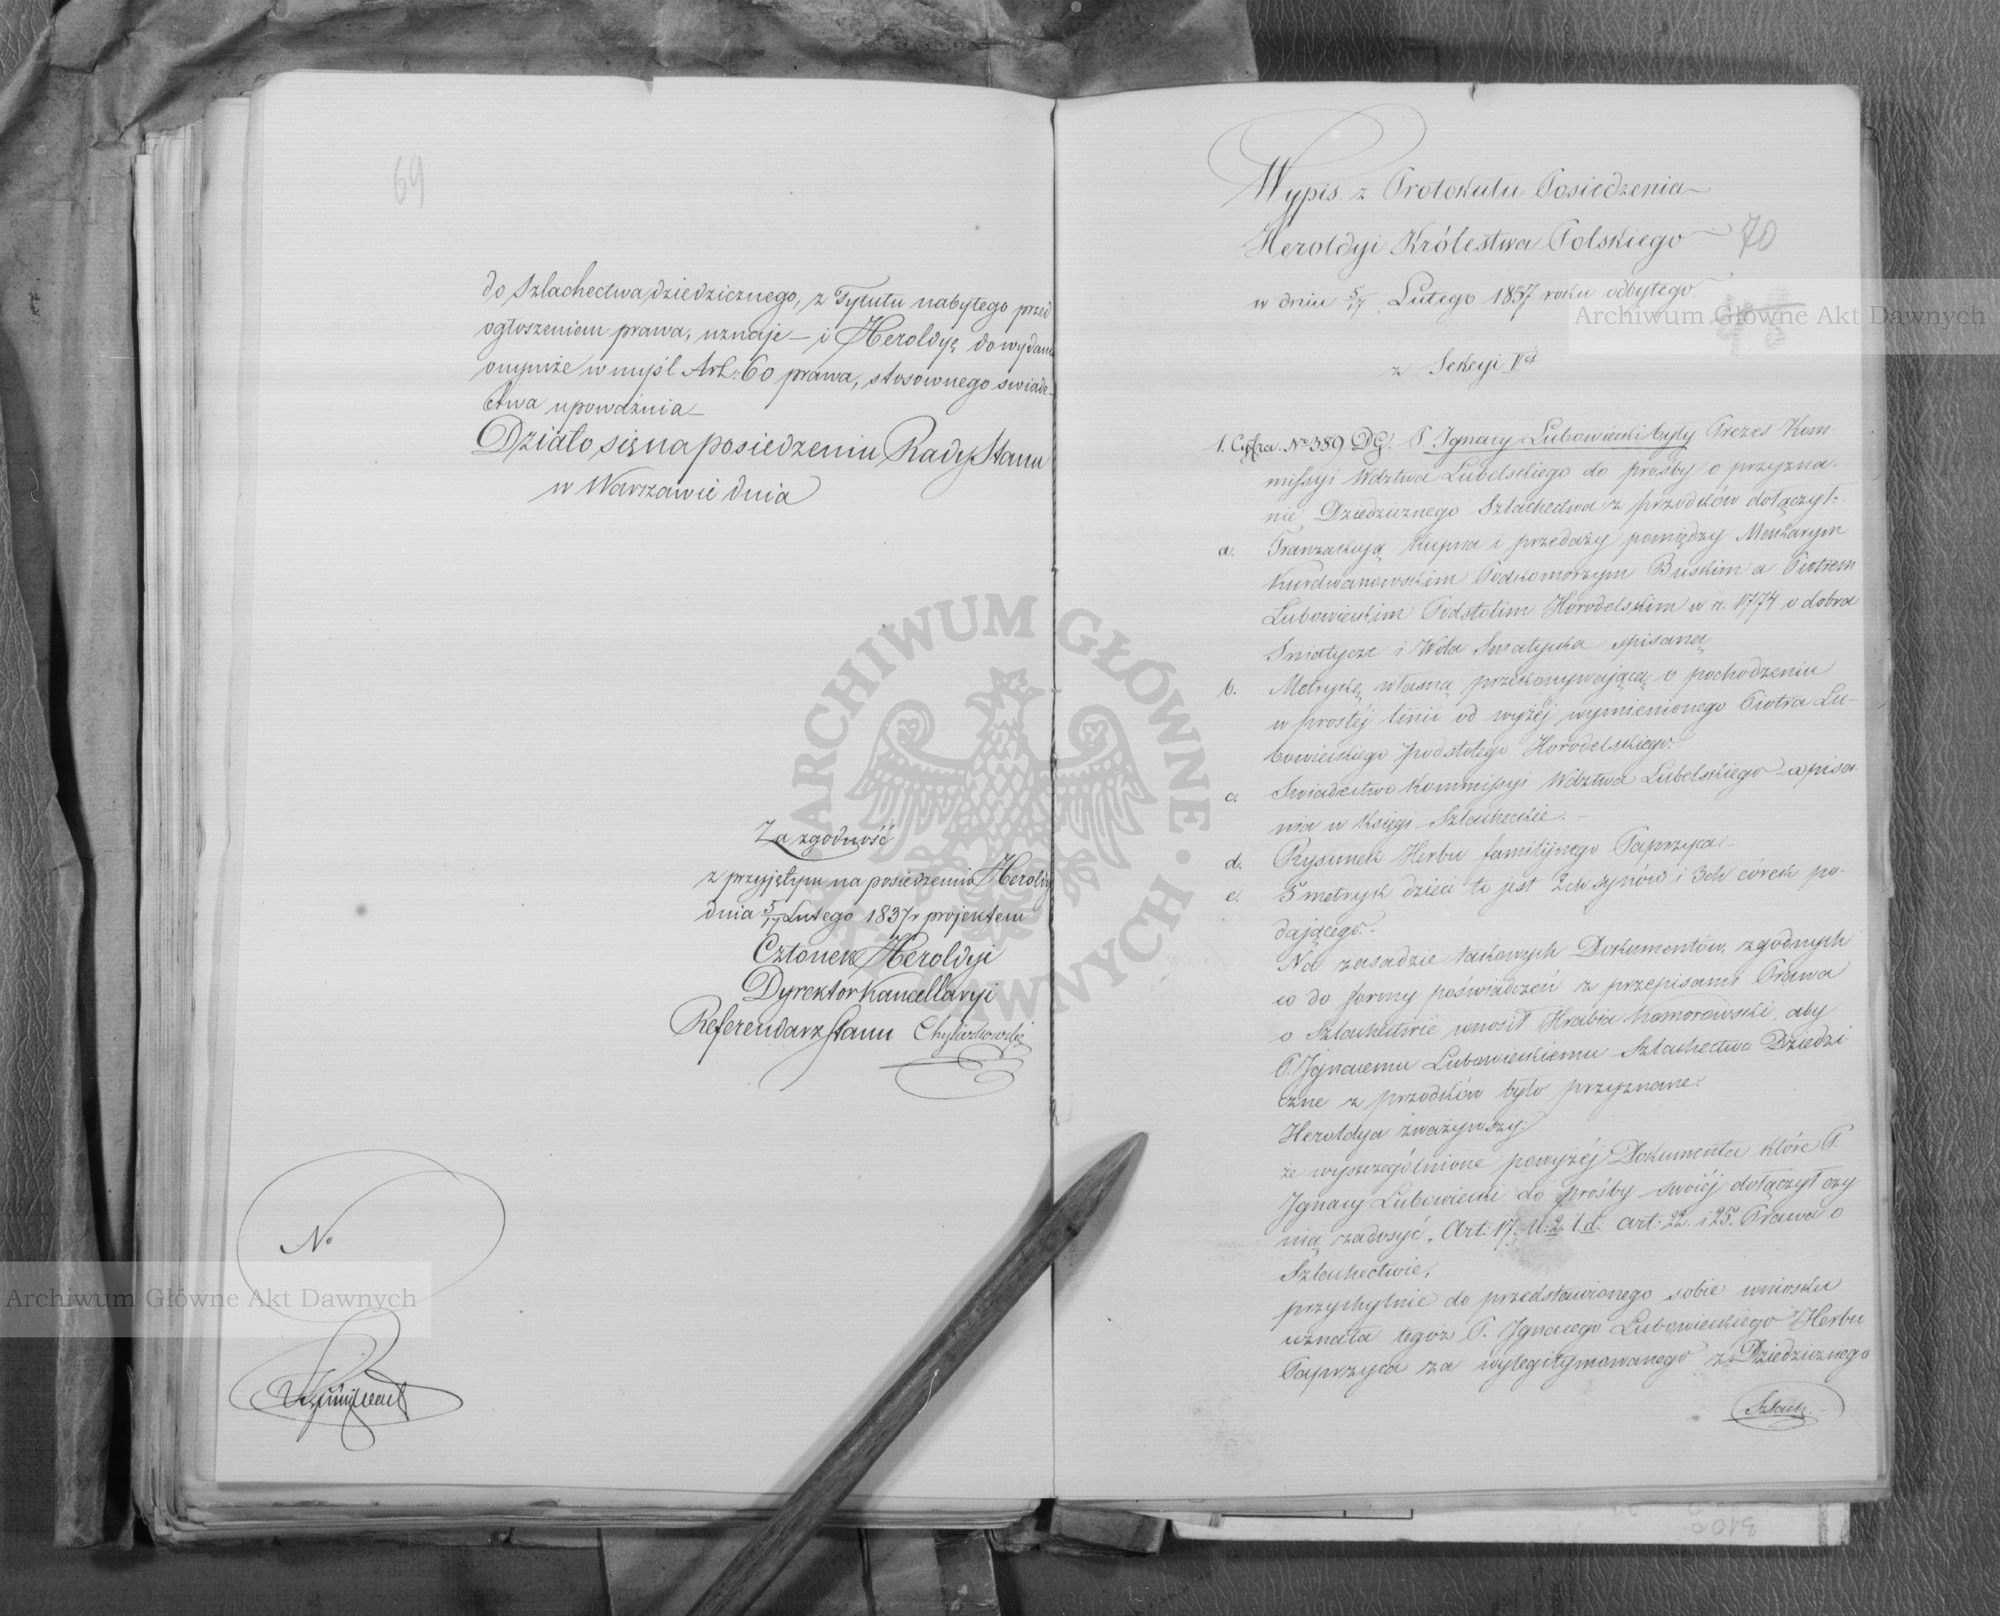 69
do Szlachectwa dziedzicznego, z Tytułu nabytego przed
ogłoszeniem prawa, uznaje — i Heroldyę do wydania
onymże w myśl Art: 60 prawa, stosownego swiade-
ctwa upoważnia —
Działo się na posiedzeniu Rady Stanu
w Warszawie dnia
Za zgodność
z przyjętym na posiedzeniu Heroldyi
dnia 5/17 Lutego 1837 r projektem
Członek Heroldyi
Dyrektor Kancellaryi
Referendarz Stanu Chyliczkowski
No
Wypis z Protokułu Posiedzenia
Heroldyi Królestwa Polskiego
70
w dniu 5/17 Lutego 1837 roku odbytego.
z Sekcyi
1. Cyfra. No 389 DG. P. Ignacy Lubowiecki były Prezes Kom-
missyi Wdztwa Lubelskiego do prośby o przyzna-
nie Dziedzicznego Szlachectwa z przodków dołączył:
a. Tranzakcyą kupna i przedaży pomiędzy
Kurdwanowskim Podkomorzym Buskim a Piotrem
Lubowieckim Podstolim Horodelskim w r. 1774 o dobra
Sniatycze i Wola Sniatycka spisaną
b. Metrykę własną przekonywającą o pochodzeniu
w prostéj linii od wyżéj wymienionego Piotra Lu-
bowieckiego podstolego Horodelskiego.
c. Swiadectwo Kommissyi Wdztwa Lubelskiego wpisa-
nia w Księgi Szlacheckie. —
d. Rysunek Herbu familijnego Paprzyca —
e. 5 metryk dzieci to jest 2ch synów i 3ch córek po-
dającego. —
Na zasadzie takowych Dokumentów, zgodnych
co do formy poświadczeń z przepisami Prawa
o Szlachectwie wnosił Hrabia Komorowski, aby
P. Ignacemu Lubowieckiemu Szlachectwo Dziedzi
czne z przodków było przyznane.
Heroldya zważywszy:
że wyszczególnione powyżéj Dokumenta które P.
Ignacy Lubowiecki do prośby swoiéj dołączył czy
nią zadosyć Art: 17. u: 2. l. d. art: 22. i 25. Prawa o
Szlachectwie,
przychylnie do przedstawionego sobie wniosku
uznała tegoż P. Ignacego Lubowieckiego Herbu
Paprzyca za wylegitymowanego z Dziedzicznego
Szlach.
Archiwum Główne Akt Dawnych
ARCHIWUM GŁÓWNE AKT DAWNYCH
Archiwum Główne Akt Dawnych